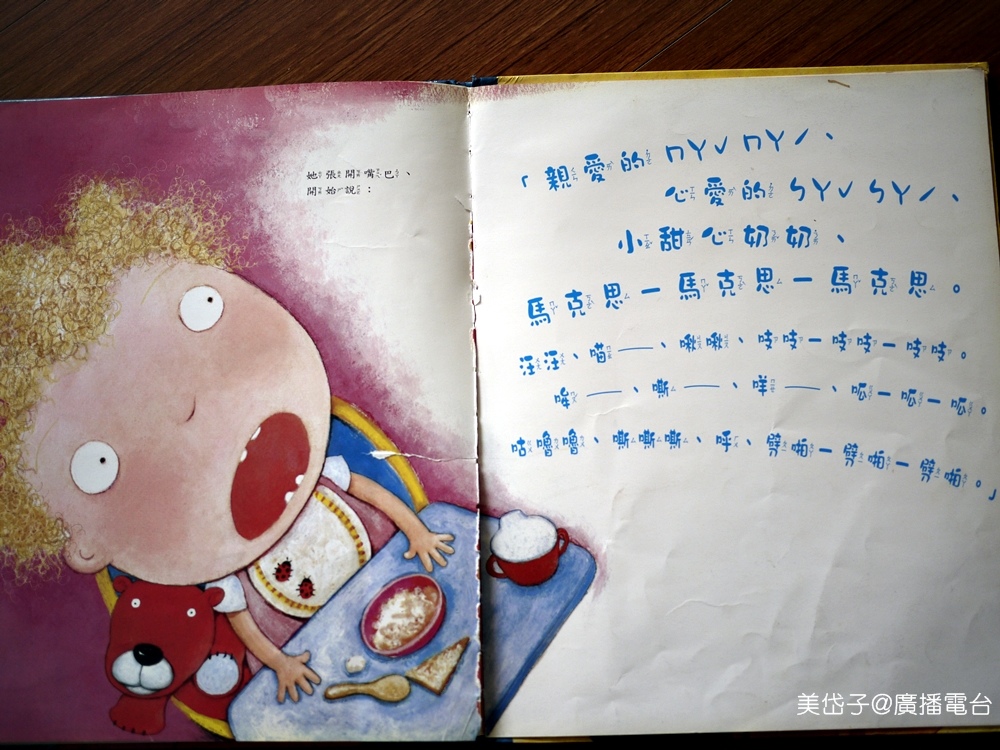 她張開嘴巴、
開始說：
「親愛的ㄇㄚˇㄇㄚˊ、
心愛的ㄅㄚˇㄅㄚˊ、
小甜心奶奶、
馬克思－馬克思－馬克思。
汪汪、喵——、啾啾、吱吱－吱吱－吱吱。
哞——、嘶——、咩——、呱－呱－呱。
咕嚕嚕、嘶嘶嘶、呼、劈啪－劈啪－劈啪。」
美岱子@廣播電台